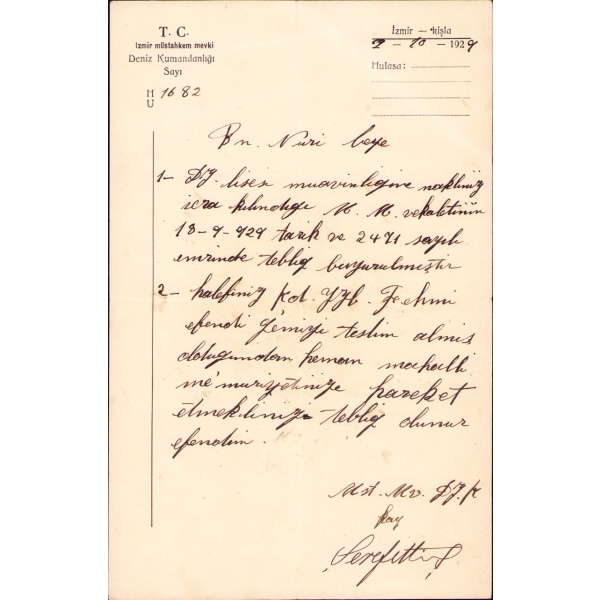 T. C.
Izmir müstahkem mevki
Deniz Kumandanlığı
Sayı
H
U 1682
Izmir — kışla
2 - 10 - 1929
Hulasa:
Bn. Nuri beye
1- DZ. lisesi muavinligine nakliniz
icra kılındığı M. M. vekaletinin
18-9-929 tarih ve 2471 sayılı
emrinde teblig buyurulmıştir
2- halefiniz Kd. Yzb. Fehmi
efendi gemiyi teslim almış
oldugundan heman mahalli
me'muriyetinize hareket
etmekliniz teblig olunur
efendim.
Mst. Mv. DZ. K
Şerefettin